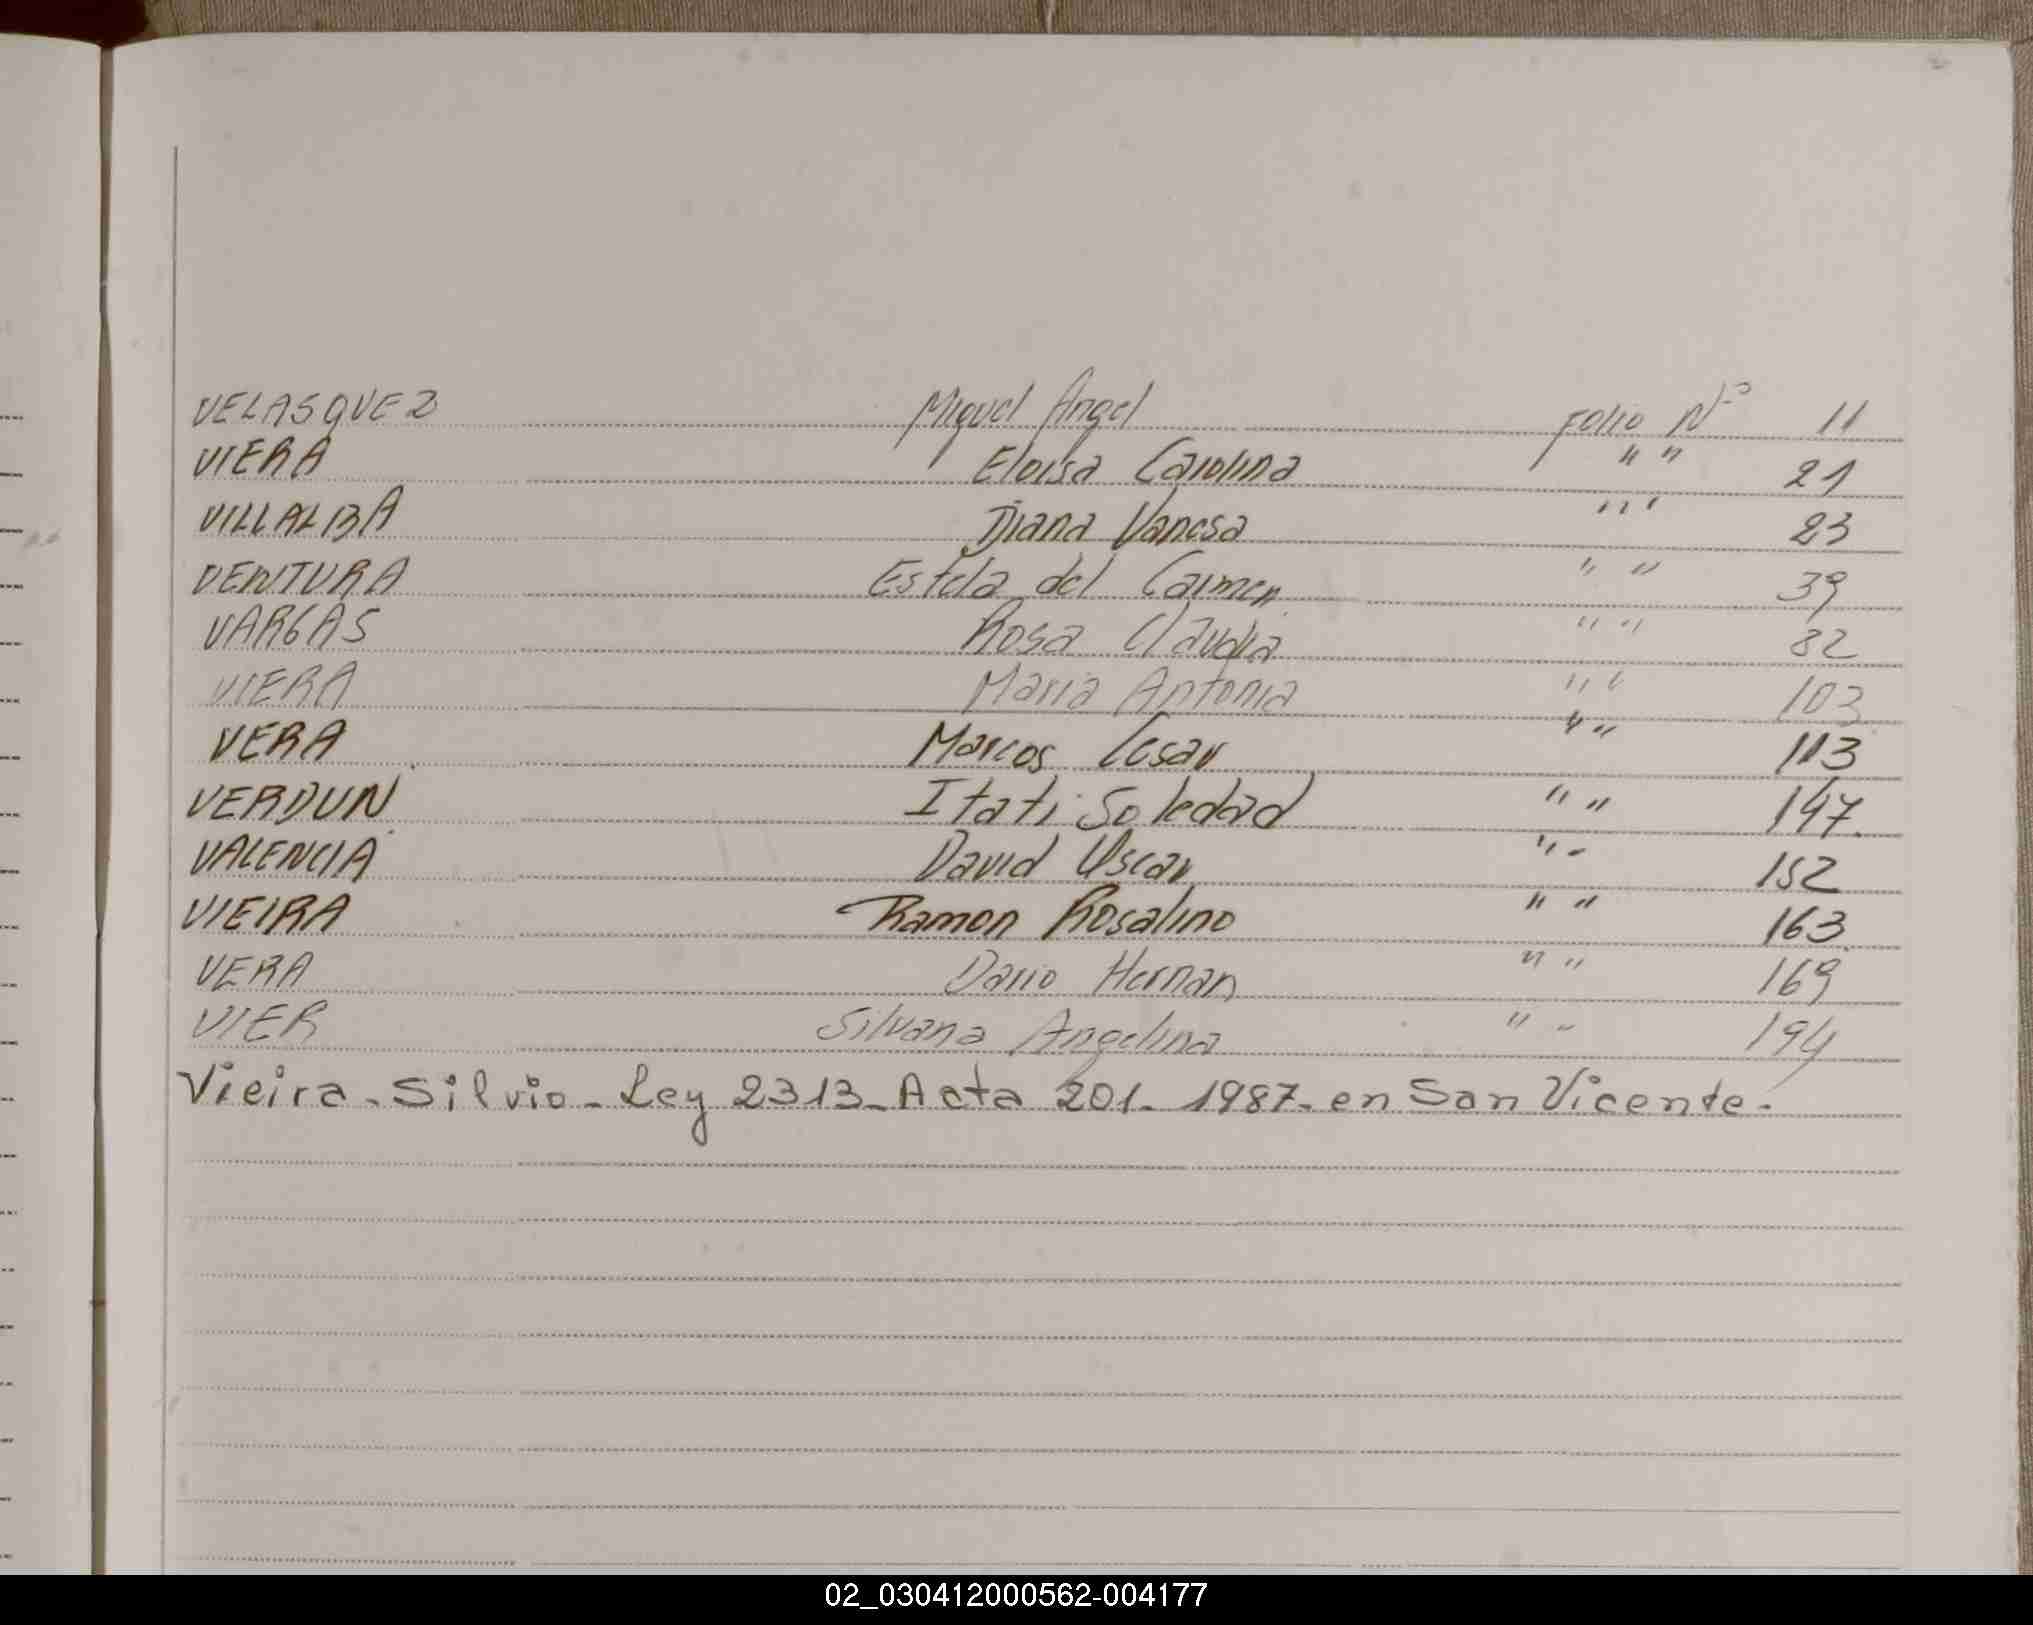 VELASQUEZ Miguel Angel Folio Nº 11
VIERA Eloisa Carolina " " 21
VILLALBA Diana Vanesa " " 23
VENTURA Estela del Carmen " " 39
VARGAS Rosa Claudia " " 82
VIERA Maria Antonia " " 103
VERA Marcos Cesar " " 113
VERDUN Itati Soledad " " 147
VALENCIA David Oscar " " 152
VIEIRA Ramon Rosalino " " 163
VERA Dario Hernan " " 169
VIER Silvana Angelina " " 194
Vieira - Silvio - Ley 2313 - Acta 201 - 1987 - en San Vicente -
02_030412000562-004177